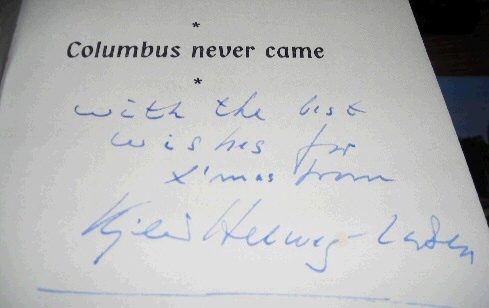 *
Columbus never came
*
with the best
wishes for
X'mas from
Helweg-Larsen